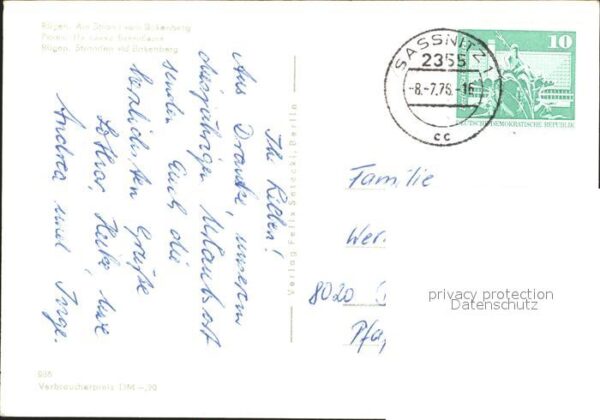 Rügen. Am Strand von Bakenberg
Rügen. Stranden vid Bakenberg
Ihr Lieben!
Aus Dranske, unserem
diesjährigen Urlaubsort
senden Euch die
herzlichsten Grüße
Lothar, Heike, Uwe
Andrea und Inge.
Verlag Felix Setecki, Berlin
SASSNITZ 1
2355
-8.-7.76.-16
cc
10
DEUTSCHE DEMOKRATISCHE REPUBLIK
Familie
Wer
8020
privacy protection
Datenschutz
Verbraucherpreis DM -,20